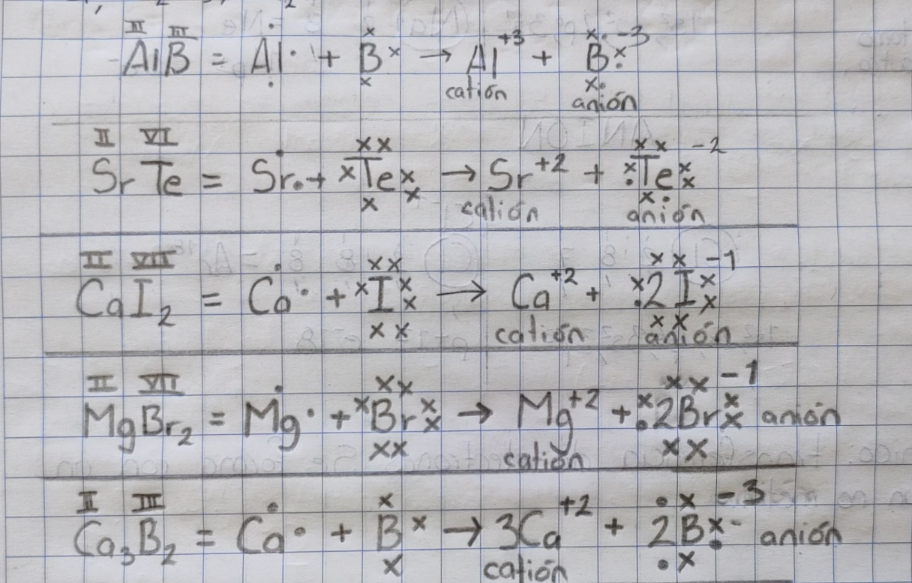 II III
AlB = Al + B → Al+3 + B-3
catión anión
II VI
SrTe = Sr + Te → Sr+2 + Te-2
catión anión
II VII
CaI2 = Ca + I → Ca+2 + 2I-1
catión anión
II VII
MgBr2 = Mg + Br → Mg+2 + 2Br-1 anión
catión
II III
Ca3B2 = Ca + B → 3Ca+2 + 2B-3 anión
catión